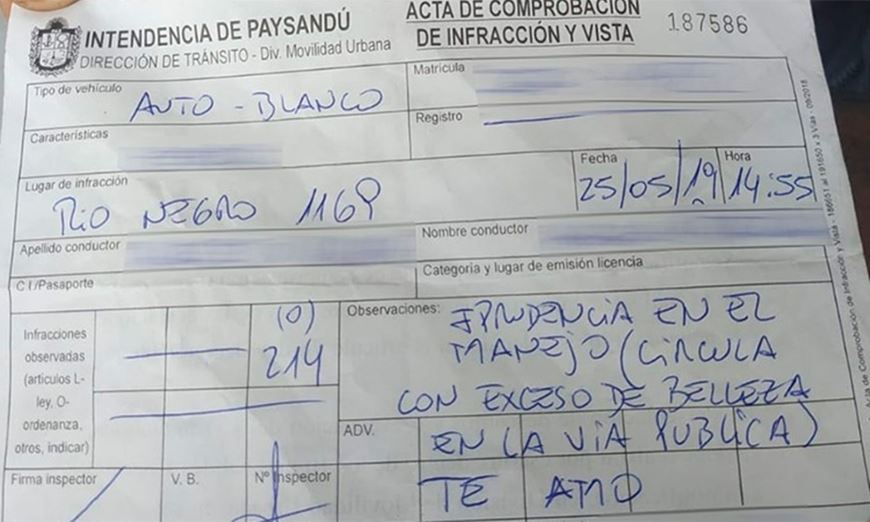 INTENDENCIA DE PAYSANDÚ
DIRECCIÓN DE TRÁNSITO - Div. Movilidad Urbana
ACTA DE COMPROBACIÓN
DE INFRACCIÓN Y VISTA
187586
Tipo de vehículo
AUTO - BLANCO
Matricula
Características
Registro
Lugar de infracción
RIO NEGRO 1169
Fecha
25/05/19
Hora
14:55
Apellido conductor
Nombre conductor
C.I/Pasaporte
Categoria y lugar de emisión licencia
Infracciones
observadas
(artículos L-
ley, O-
ordenanza,
otros, indicar)
(0)
214
Observaciones:
IPRUDENCIA EN EL
MANEJO (CIRCULA
CON EXCESO DE BELLEZA
EN LA VIA PUBLICA)
TE AMO
ADV.
Firma inspector
V. B.
Nº Inspector
Acta de Comprobación de Infracción y Vista - 186651 al 191650 x 3 Vías - 09/2018